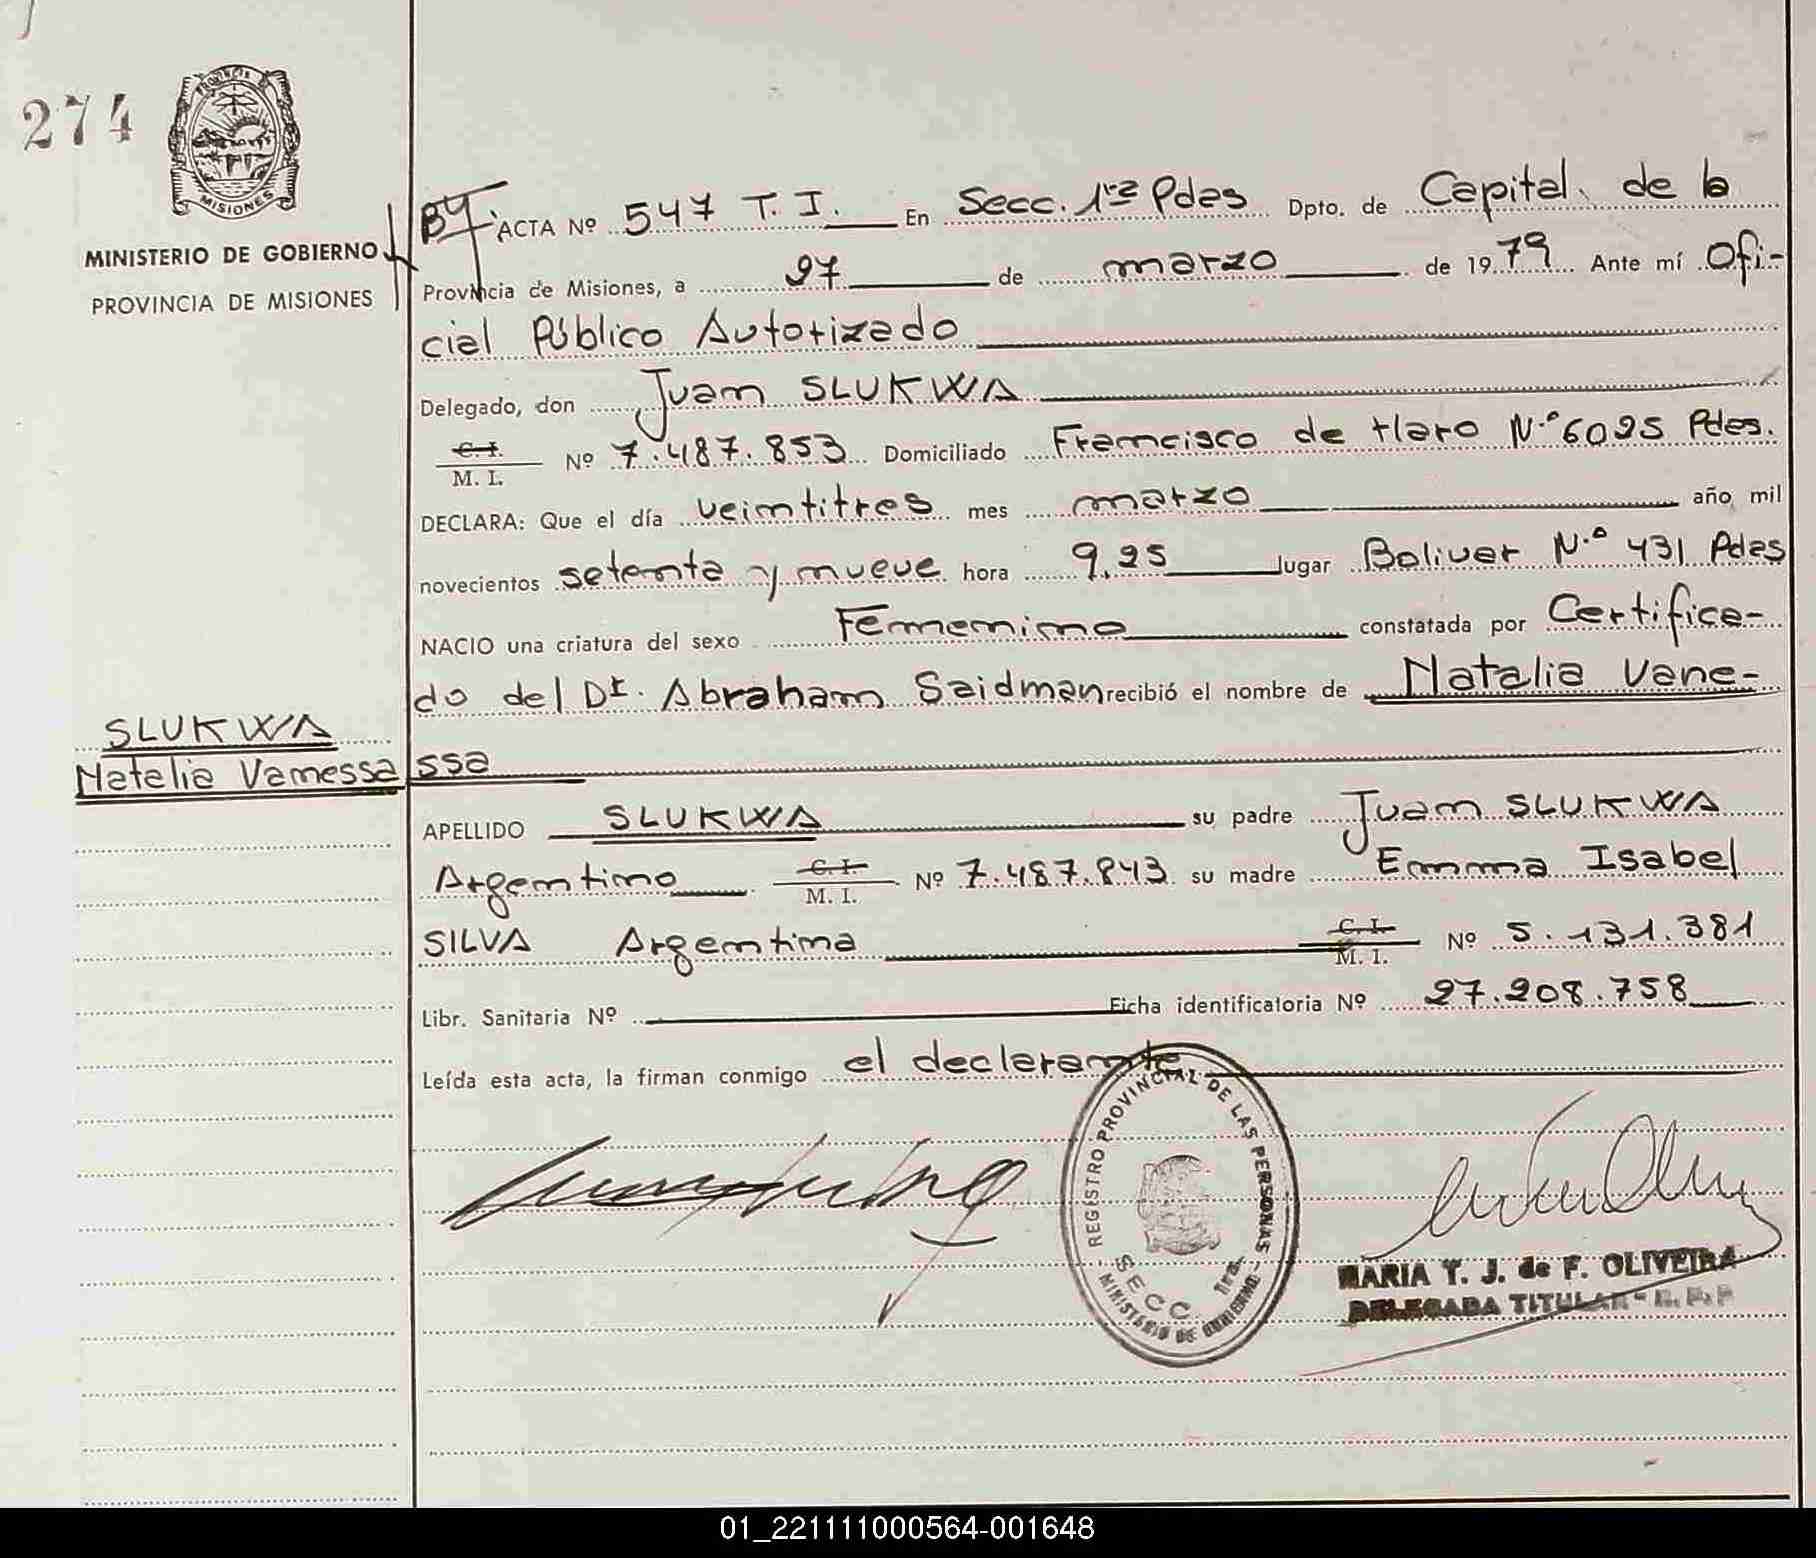 274
PROVINCIA DE
MISIONES
MINISTERIO DE GOBIERNO
PROVINCIA DE MISIONES
ACTA Nº 547 T. I. En Secc. 1ra Pdas Dpto. de Capital. de la
Provincia de Misiones, a 27 de marzo de 1979 Ante mí Ofi-
cial Público Autorizado
Delegado, don Juan SLUKWA
C. I.
M. I. Nº 7.487.853 Domiciliado Francisco de Haro N.º 6025 Pdas.
DECLARA: Que el día veintitres mes marzo año mil
novecientos setenta y nueve hora 9,25 lugar Bolivar N.º 431 Pdas
NACIO una criatura del sexo Femenino constatada por Certifica-
do del Dr. Abraham Saidman recibió el nombre de Natalia Vane-
ssa
SLUKWA
Natalia Vanessa
APELLIDO SLUKWA su padre Juan SLUKWA
Argentino C. I. M. I. Nº 7.487.843 su madre Emma Isabel
SILVA Argentina C. I. M. I. Nº 5.131.381
Libr. Sanitaria Nº Ficha identificatoria Nº 27.208.758
Leída esta acta, la firman conmigo el declarante
REGISTRO PROVINCIAL DE LAS PERSONAS
SECC. 1ra.
MINISTERIO DE GOBIERNO
MARIA Y. J. de F. OLIVEIRA
DELEGADA TITULAR - R. P. P
01_221111000564-001648